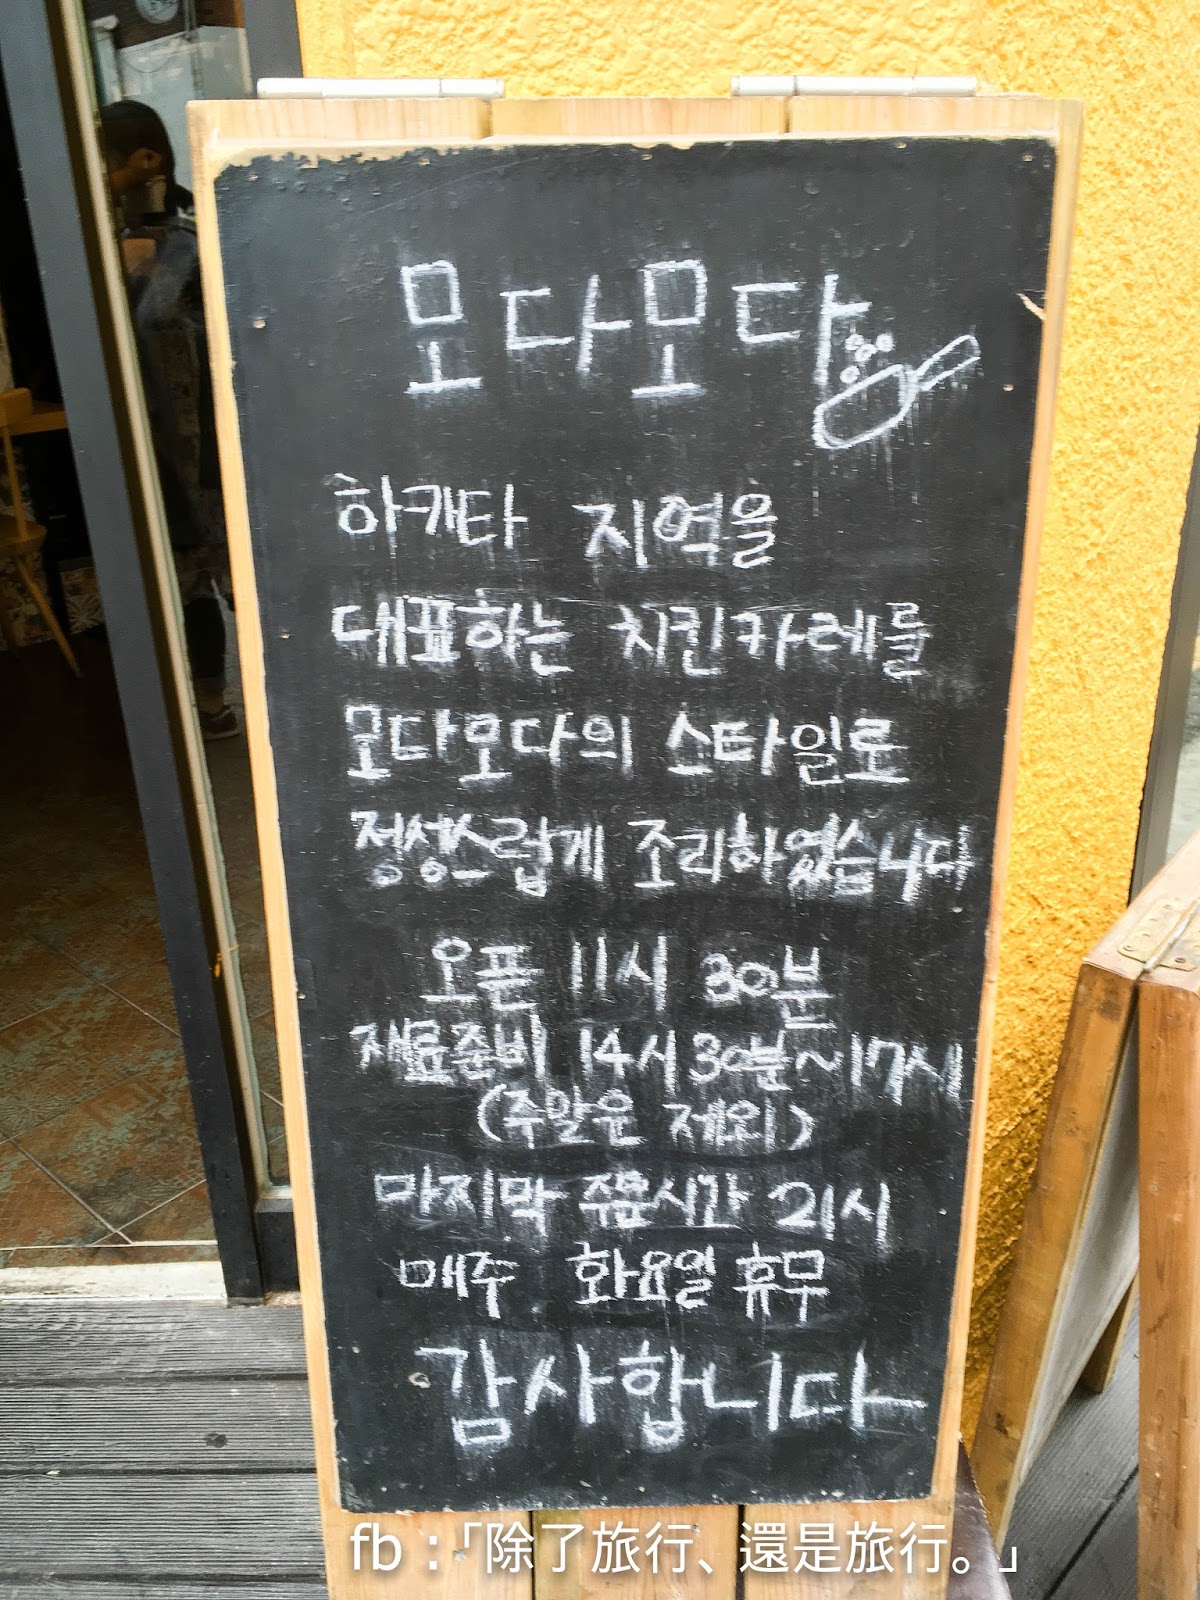 모다모다
하카타 지역을
대표하는 치킨카레를
모다모다의 스타일로
정성스럽게 조리하였습니다
오픈 11시 30분
재료준비 14시 30분~17시
(주말은 제외)
마지막 주문시간 21시
매주 화요일 휴무
감사합니다
fb:「除了旅行、還是旅行。」